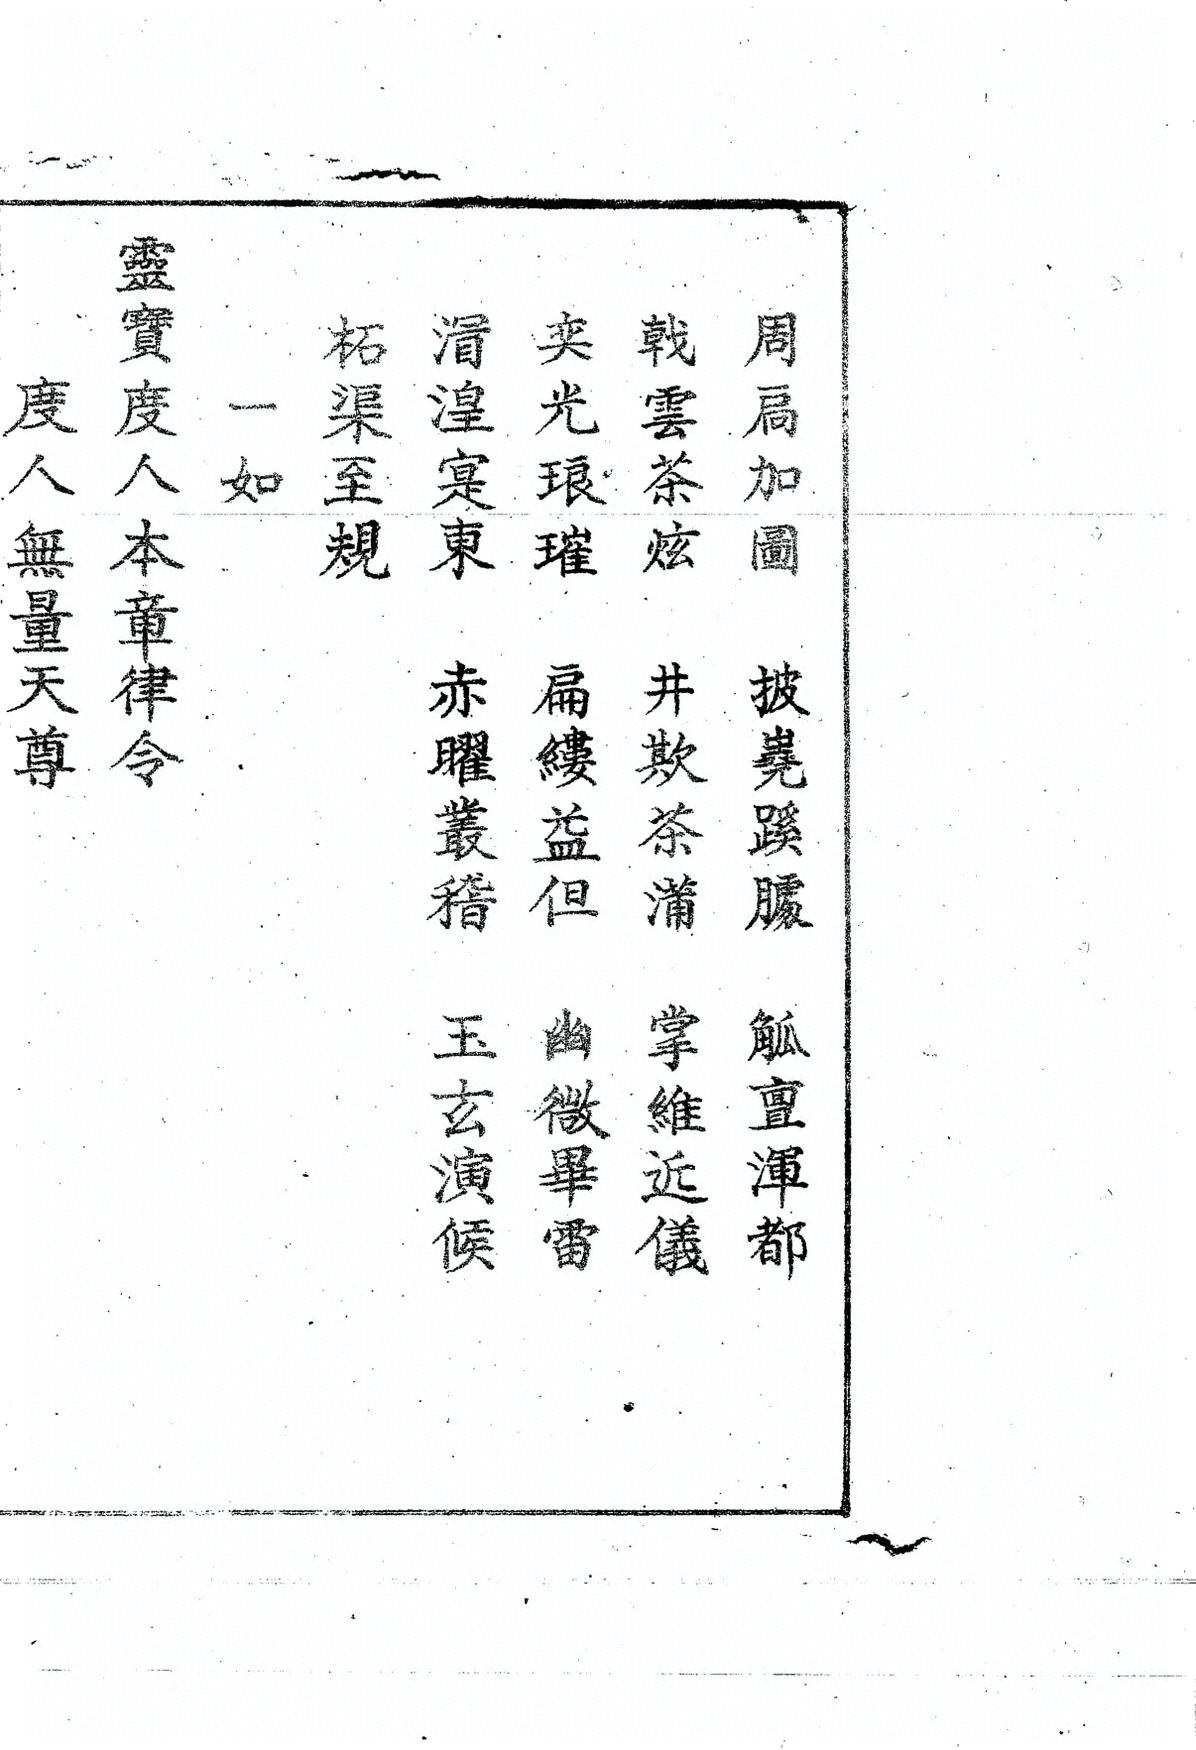 周扃加圖　披嶤蹊臄　觚亶渾都
戟雲茶炫　井欺茶蒲　掌維近儀
奕光琅璀　扁縷益但　幽微畢雷
湑湟寔東　赤曜叢稽　玉玄演候
柘渠至規
一如
靈寶度人本章律令
度人無量天尊